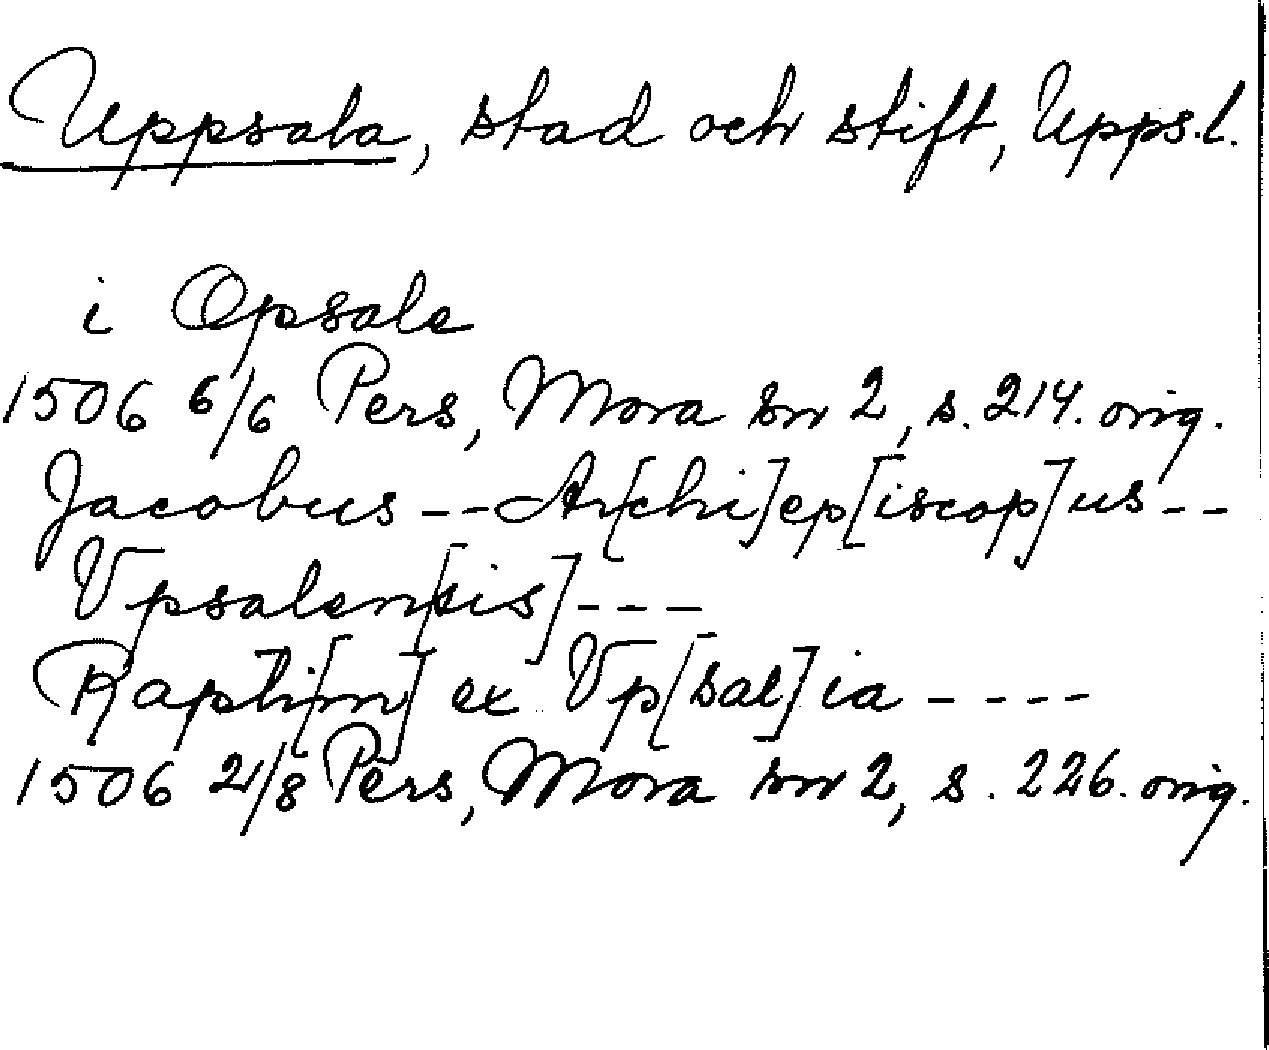 Uppsala, stad och stift, Upps.l.
i Opsale
1506 6/6 Pers, Mora sn 2, s. 214. orig.
Jacobus -- Ar[chi]ep[iscop]us --
Vpsalen[sis] ---
Rapti[m] ex Vp[sal]ia ----
1506 21/8 Pers, Mora sn 2, s. 226. orig.